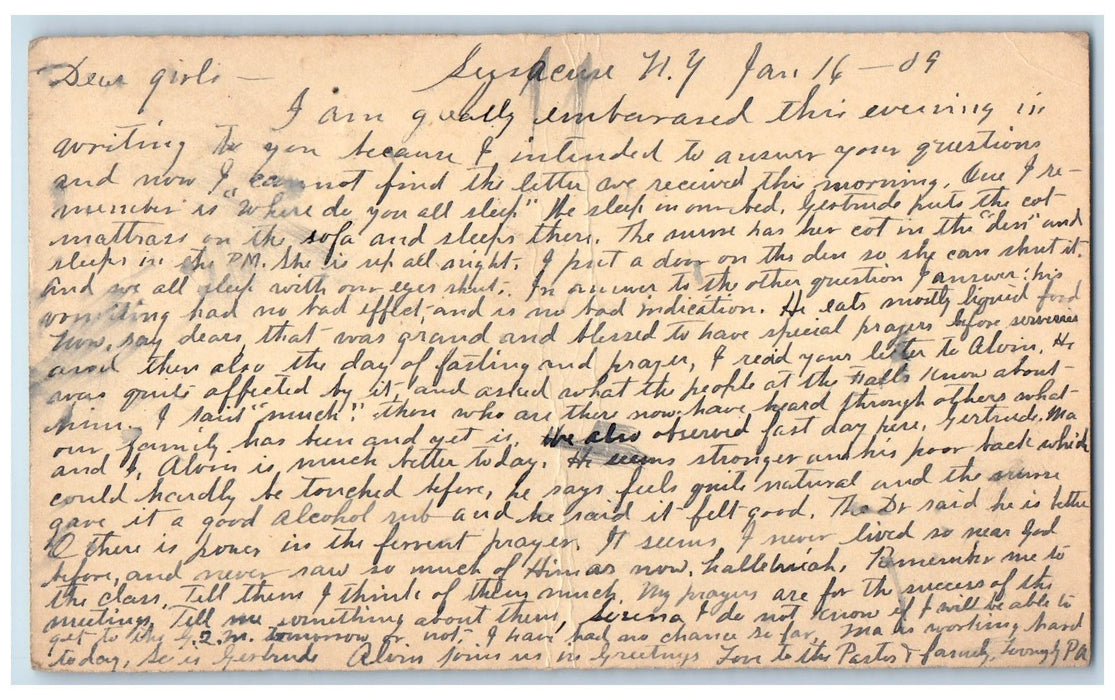 Dear girls — Syracuse N.Y Jan 16 — 09
I am greatly embarased this evening in
writing to you because I intended to answer your questions
and now I cannot find the letter we received this morning. One I re-
member is "Where do you all sleep" We sleep in our bed, Gertrude puts the cot
mattrass on the sofa and sleeps there. The nurse has her cot in the "den" and
sleeps in the PM. She is up all night. I put a door on the den so she can shut it.
And we all sleep with our eyes shut. In answer to the other question I answer: his
vomiting had no bad effect and is no bad indication. He eats mostly liquid food
Now, say dears, that was grand and blessed to have special prayers before services
and then also the day of fasting and prayer, I read your letter to Alvin. He
was quite affected by it, and asked what the people at the Falls know about
him. I said "much", those who are there now have heard through others what
our family has been and yet is. We also observed fast day here, Gertrude, Ma
and I, Alvin is much better today. He seems stronger and his poor back which
could hardly be touched before, he says feels quite natural and the nurse
gave it a good alcohol rub and he said it felt good. The Dr said he is better
O there is power in the fervent prayer. It seems I never lived so near God
before, and never saw so much of Him as now, hallelujah. Remember me to
the class, Tell them I think of them much. My prayers are for the success of the
meetings, Tell me something about them, Serena, I do not know if I will be able to
get to the Q.M. tomorrow or not, I have had no chance so far. Ma is working hard
today, So is Gertrude Alvin joins us in Greetings Love to the Pastor & family, Lovingly PA